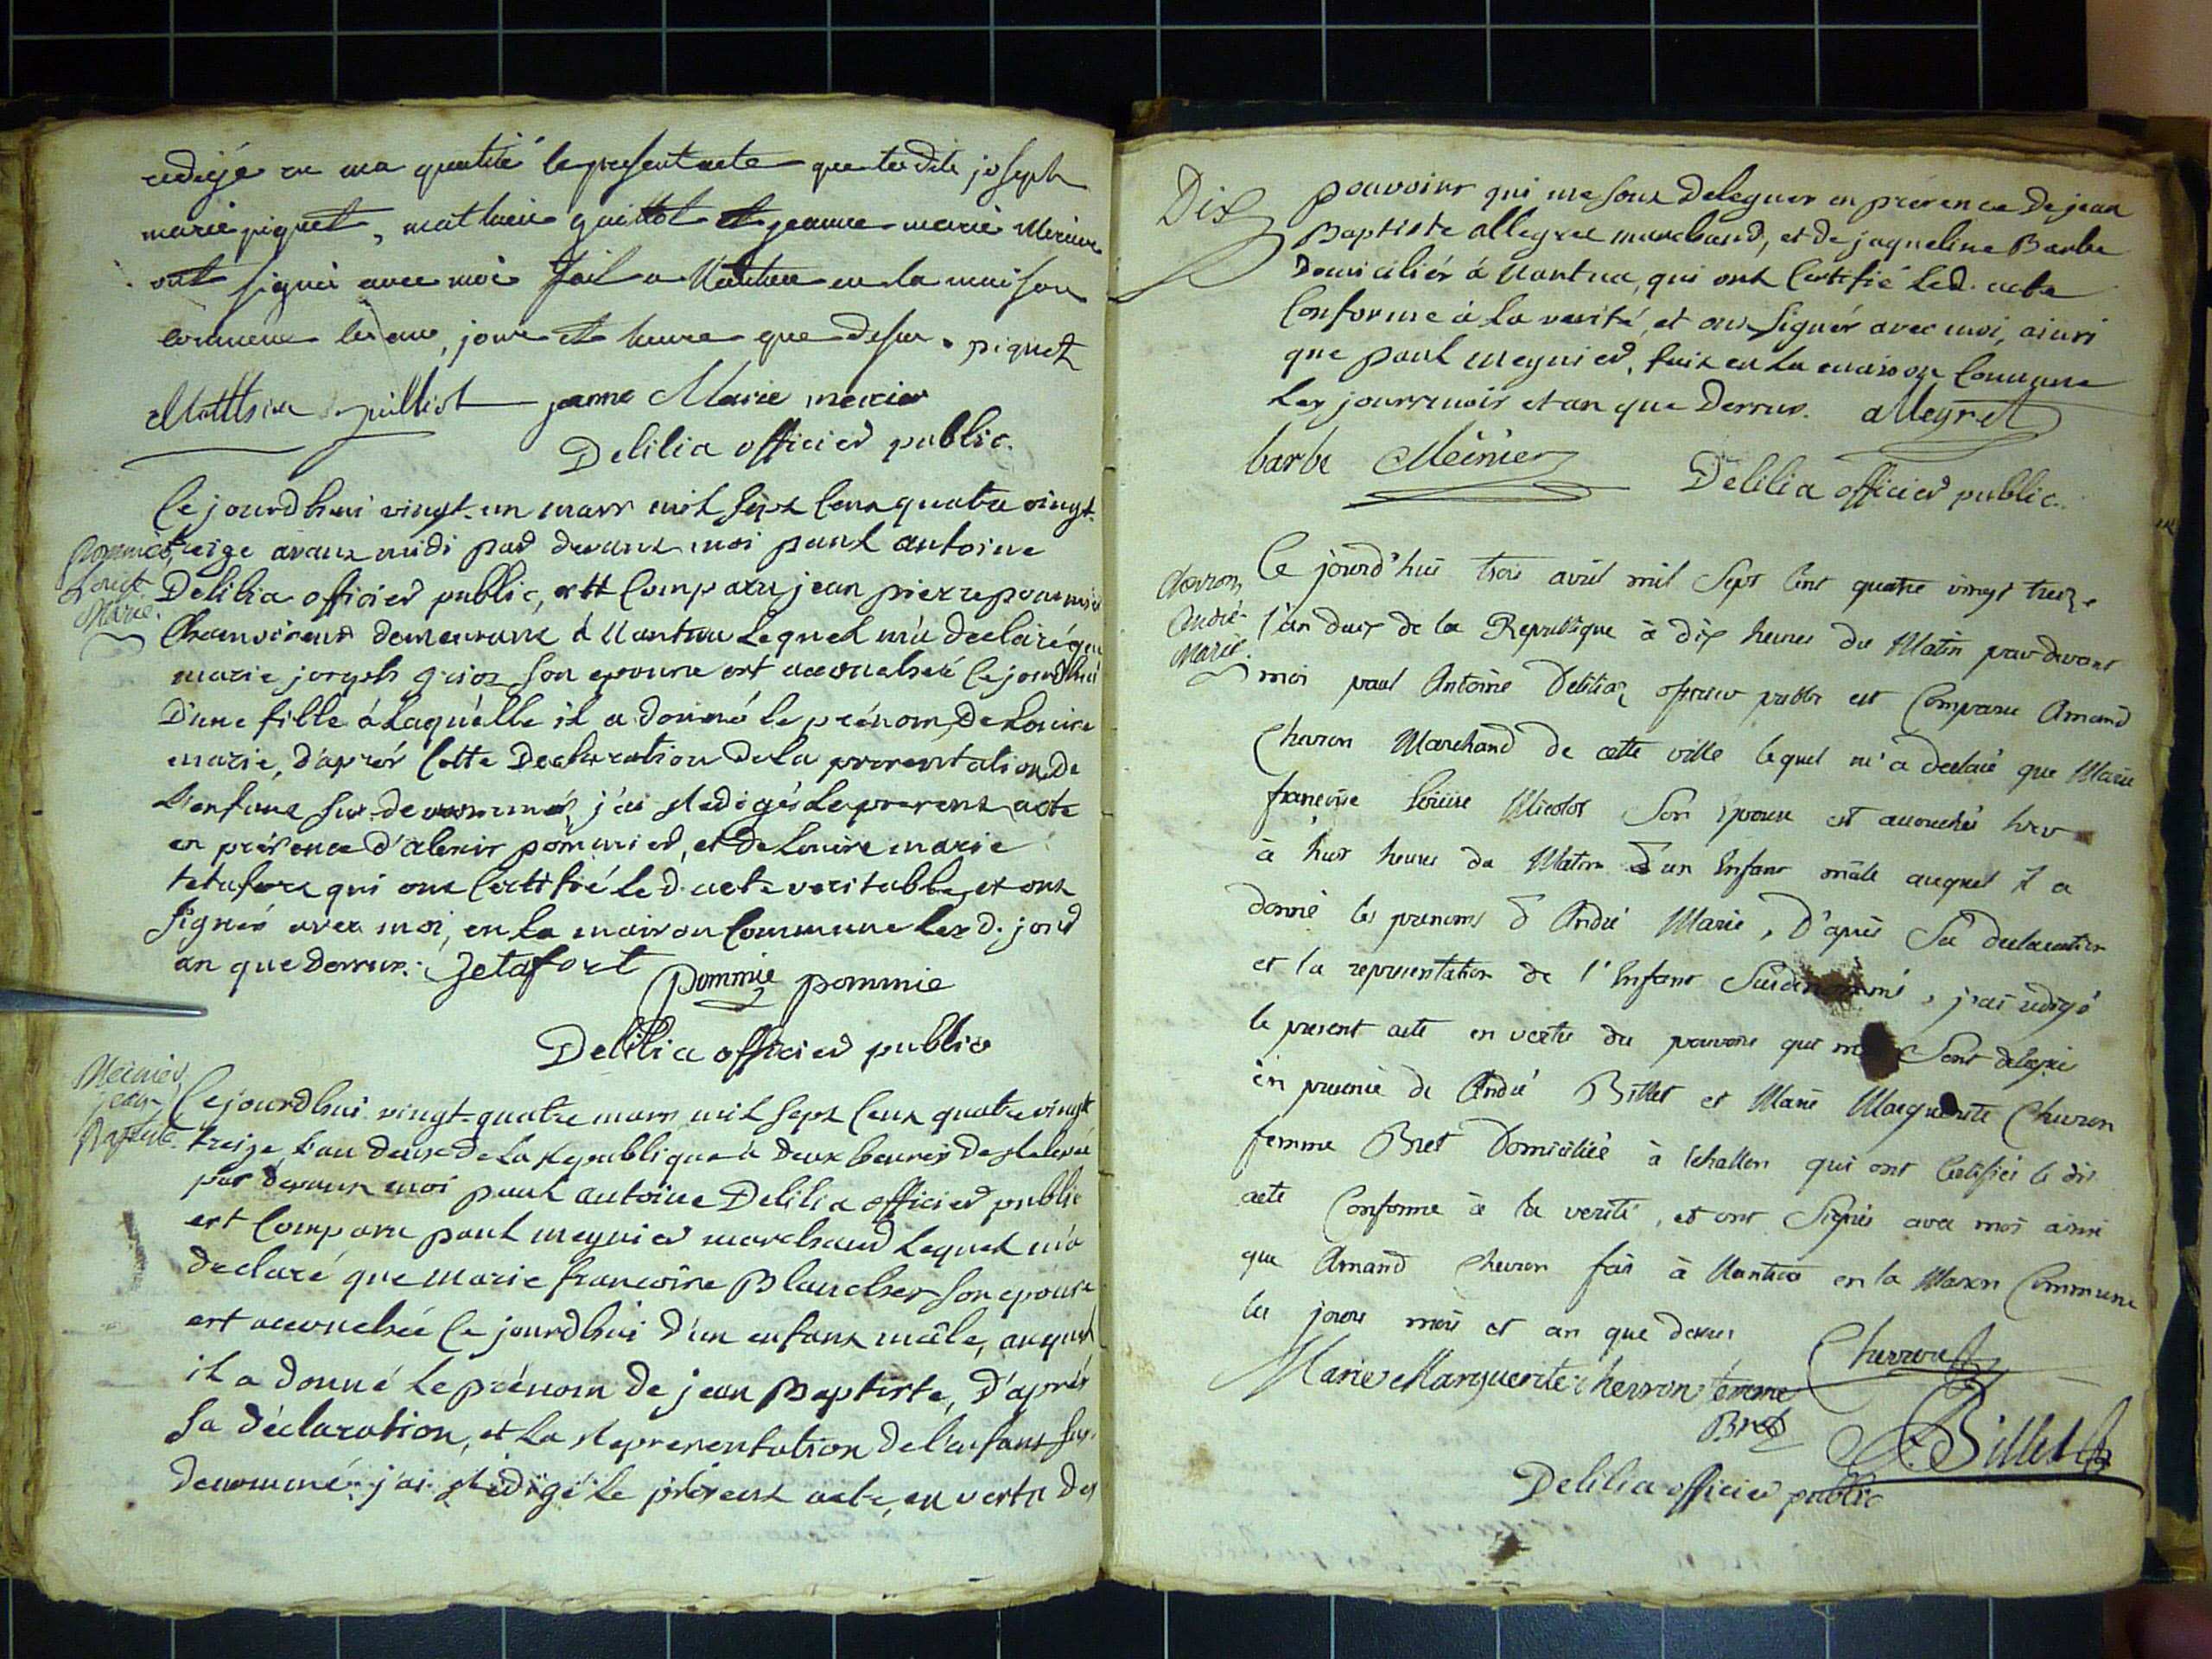 redigé en ma qualité le present acte que les dits joseph
marie piquet, mathieu guillot et jeanne marie Mercier
ont signés avec moi fait a Nantua en la maison
commune les an, jour et heure que dessus. piquet
Matthieu guilliot jeanne Marie mercier
Delilia officier public.
Cejourdhui vingt-un mars mil sept cent quatre vingt-
treize avant midi par devant moi paul antoine
Pommier
Louise
Marie.
Delilia officier public, est comparu jean pierre pommier
demeurant à Nantua lequel m'a declaré que
marie joseph son epouse est accouchée cejourdhui
D'une fille à Laquelle il a donné le prénom De Louise
marie, d'après cette Declaration De la presentation De
L'enfant sus-denommé, j'ai Redigés le present acte
en présence d'alexis pommier, et De Louise marie
tetafort qui ont certifié led. acte veritable, et ont
signés avec moi, en la maison commune les d. jour
an que dessus. Tetafort pommie pommie
Delilia officier public
Meinier
jean
Baptiste.
Cejourdhui vingt-quatre mars mil sept cent quatre vingt
treize, l'an deux de La Republique à deux heures de Relevée
par devant moi paul antoine Delilia officier public
est comparu paul meynier marchand lequel m'a
declaré que marie francoise Blanchet son epouse
est accouchée cejourdhui d'un enfant mâle, auquel
il a donné le prénom de jean Baptiste, D'après
sa déclaration, et La Representation de l'enfant sus-
denommé j'ai Redigé le présent acte, en vertu des
Dix
pouvoirs qui me sont Deleguer en présence De jean
Baptiste allegret marchand, et de jaqueline Barbe
Domiciliés à Nantua, qui ont certifié led. acte
conforme à la verité, et ont signés avec moi, ainsi
que paul meynier, fait en La maison commune
Les jours mois et an que Dessus. allegret
barbe Meinier
Delilia officier public.
Chevron
André-
Marie.
Ce jourd'hui trois avril mil sept cent quatre vingt treize
l'an deux de la Republique à dix heures du Matin par devant
moi paul Antoine Delilia officier public est Comparu Amand
Chevron Marchand de cette ville lequel m'a declaré que Marie
françoise Louise Nicolot son Epouse est accouchée hier
à huit heures du Matin d'un Enfant mâle auquel il a
donné les prenoms d'André Marie, D'après sa declaration
et la representation de l'Enfant Susdenommé, j'ai redigé
le present acte en vertu du pouvoir qui me Sont delegué
en presence de André Billet et Marie Marguerite Chevron
femme Bret Domiciliée à Echallon qui ont Certifiés le dit
acte Conforme à la verité, et ont Signés avec moi ainsi
que Amand Chevron fait à Nantua en la Maison Commune
les jours mois et an que dessus
Chevron
Marie Marguerite cherron femme
Bret
Billet
Delilia officier public